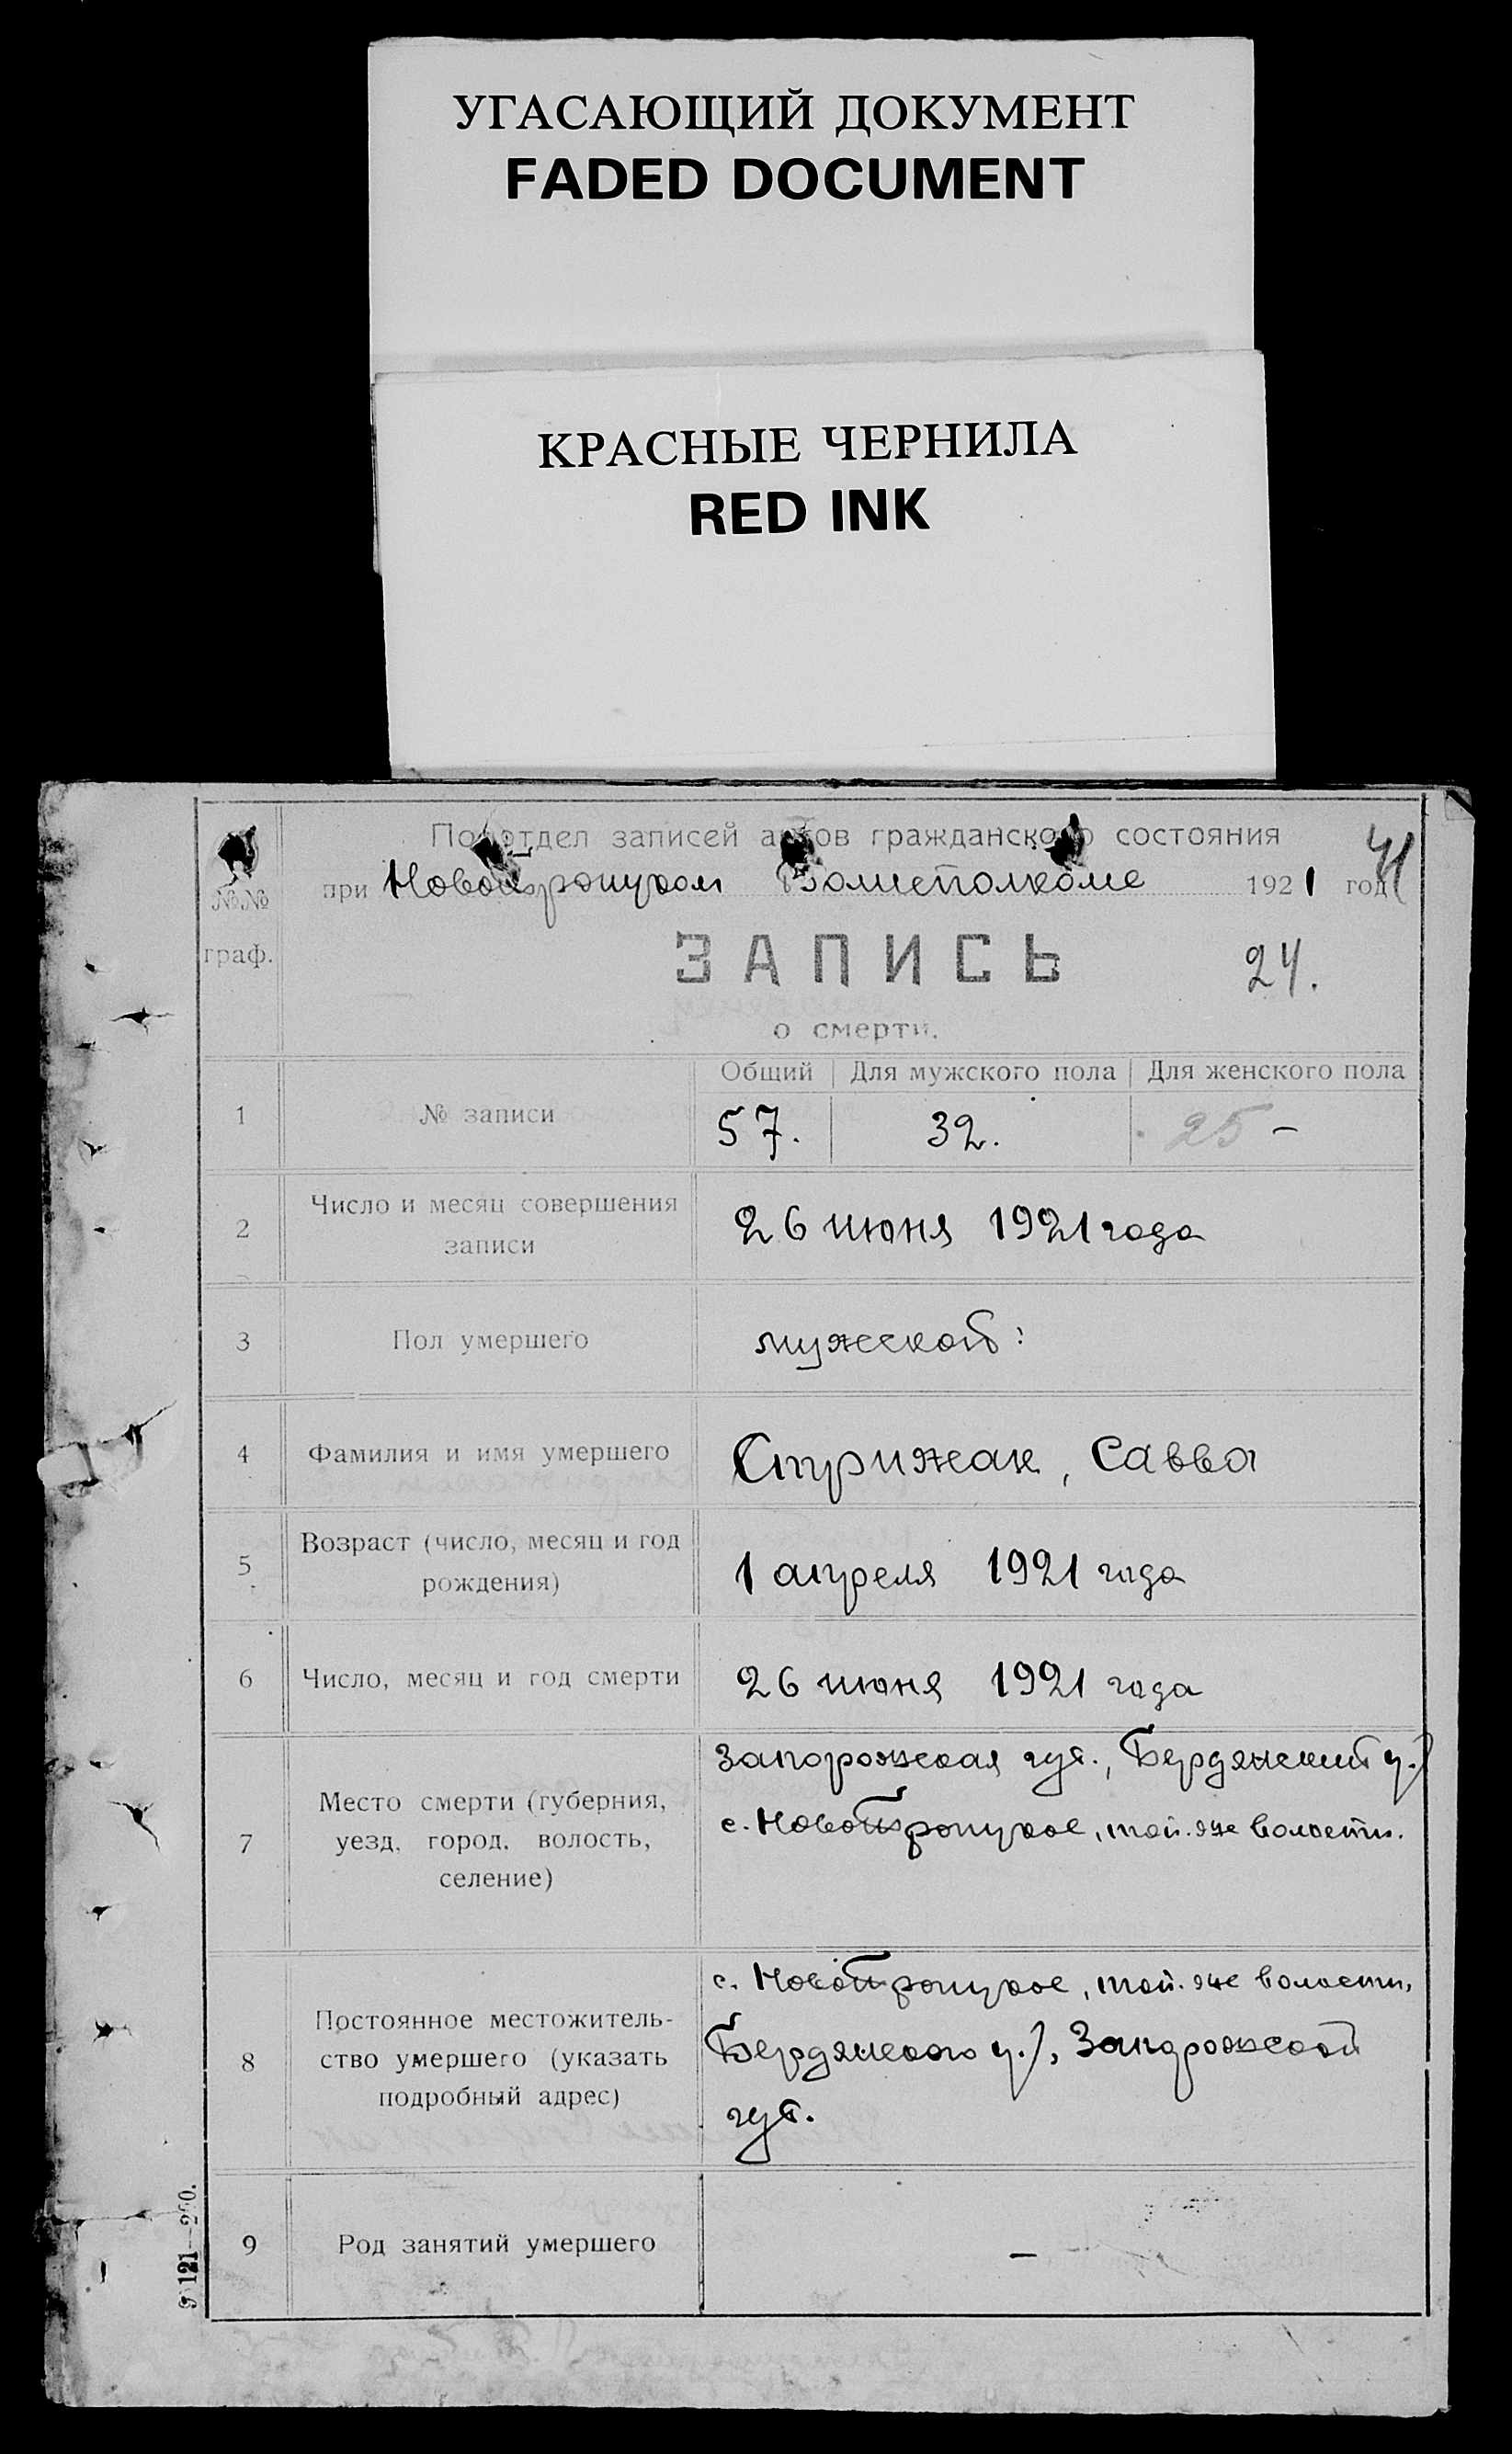 УГАСАЮЩИЙ ДОКУМЕНТ
FADED DOCUMENT
КРАСНЫЕ ЧЕРНИЛА
RED INK
Подотдел записей актов гражданского состояния
при Новотроицком Волисполкоме 1921 год
41
№№
граф.
ЗАПИСЬ
24.
о смерти.
Общий Для мужского пола Для женского пола
1 № записи 57. 32. 25 –
2 Число и месяц совершения
записи
26 июня 1921 года
3 Пол умершего мужской:
4 Фамилия и имя умершего Стрижак, Савва
5 Возраст (число, месяц и год
рождения)
1 апреля 1921 года
6 Число, месяц и год смерти 26 июня 1921 года
7 Место смерти (губерния,
уезд, город, волость,
селение)
Запорожская губ., Бердянский у.,
с. Новотроицкое, той-же волости.
8 Постоянное местожитель-
ство умершего (указать
подробный адрес)
с. Новотроицкое, той-же волости,
Бердянского у., Запорожской
губ.
9 Род занятий умершего –